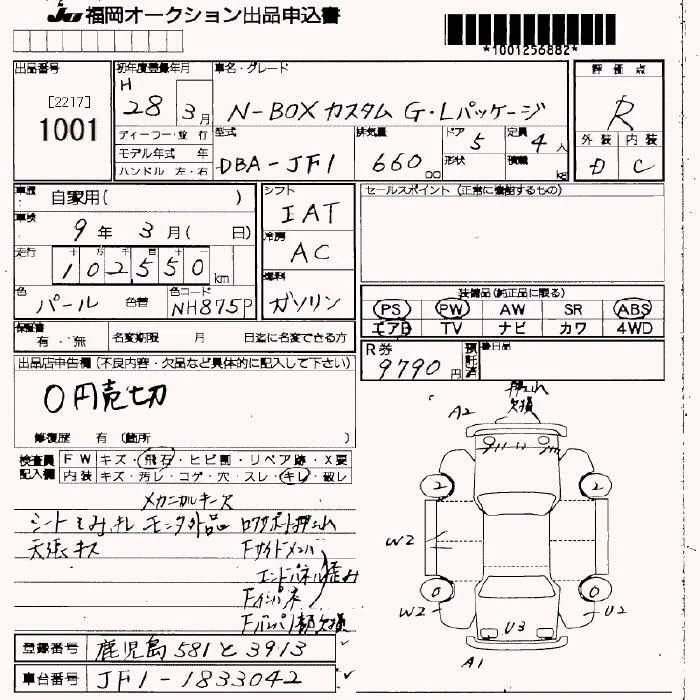 JU 福岡オークション出品申込書
*1001256882*
出品番号
[2217]
1001
初年度登録年月
H 28 3月
ディーラー・並行
モデル年式 年
ハンドル 左・右
車名・グレード
N-BOX カスタム G・Lパッケージ
型式
DBA-JF1
排気量
660 cc
ドア 5
形状
定員 4人
積載 kg
評価点
R
外装 内装
D C
車歴 自家用( )
車検
9年 3月( 日)
走行
102550 km
色 パール 色替
色コード NH875P
シフト
IAT
冷房
AC
燃料
ガソリン
セールスポイント (正常に機能するもの)
装備品(純正品に限る)
PS PW AW SR ABS
エアB TV ナビ カワ 4WD
保証書 有・無
名変期限 月 日迄に名変できる方
R券 9790円
預託済
後日品
出品店申告欄 (不良内容・欠品など具体的に記入して下さい)
0円売切
修復歴 有 (箇所 )
検査員記入欄
FW キズ・飛石・ヒビ割・リペア跡・X要
内装 キズ・汚レ・コゲ・穴・スレ・キレ・破レ
メカニカルキーヌ
シート
キレ モニタ外品
天張キス
Fサイドメンバ
エンドパネル歪み
欠損
A2
2 2
W2
0 0
W2 U2
U3
A1
登録番号 鹿児島 581 と 3913
車台番号 JF1-1833042